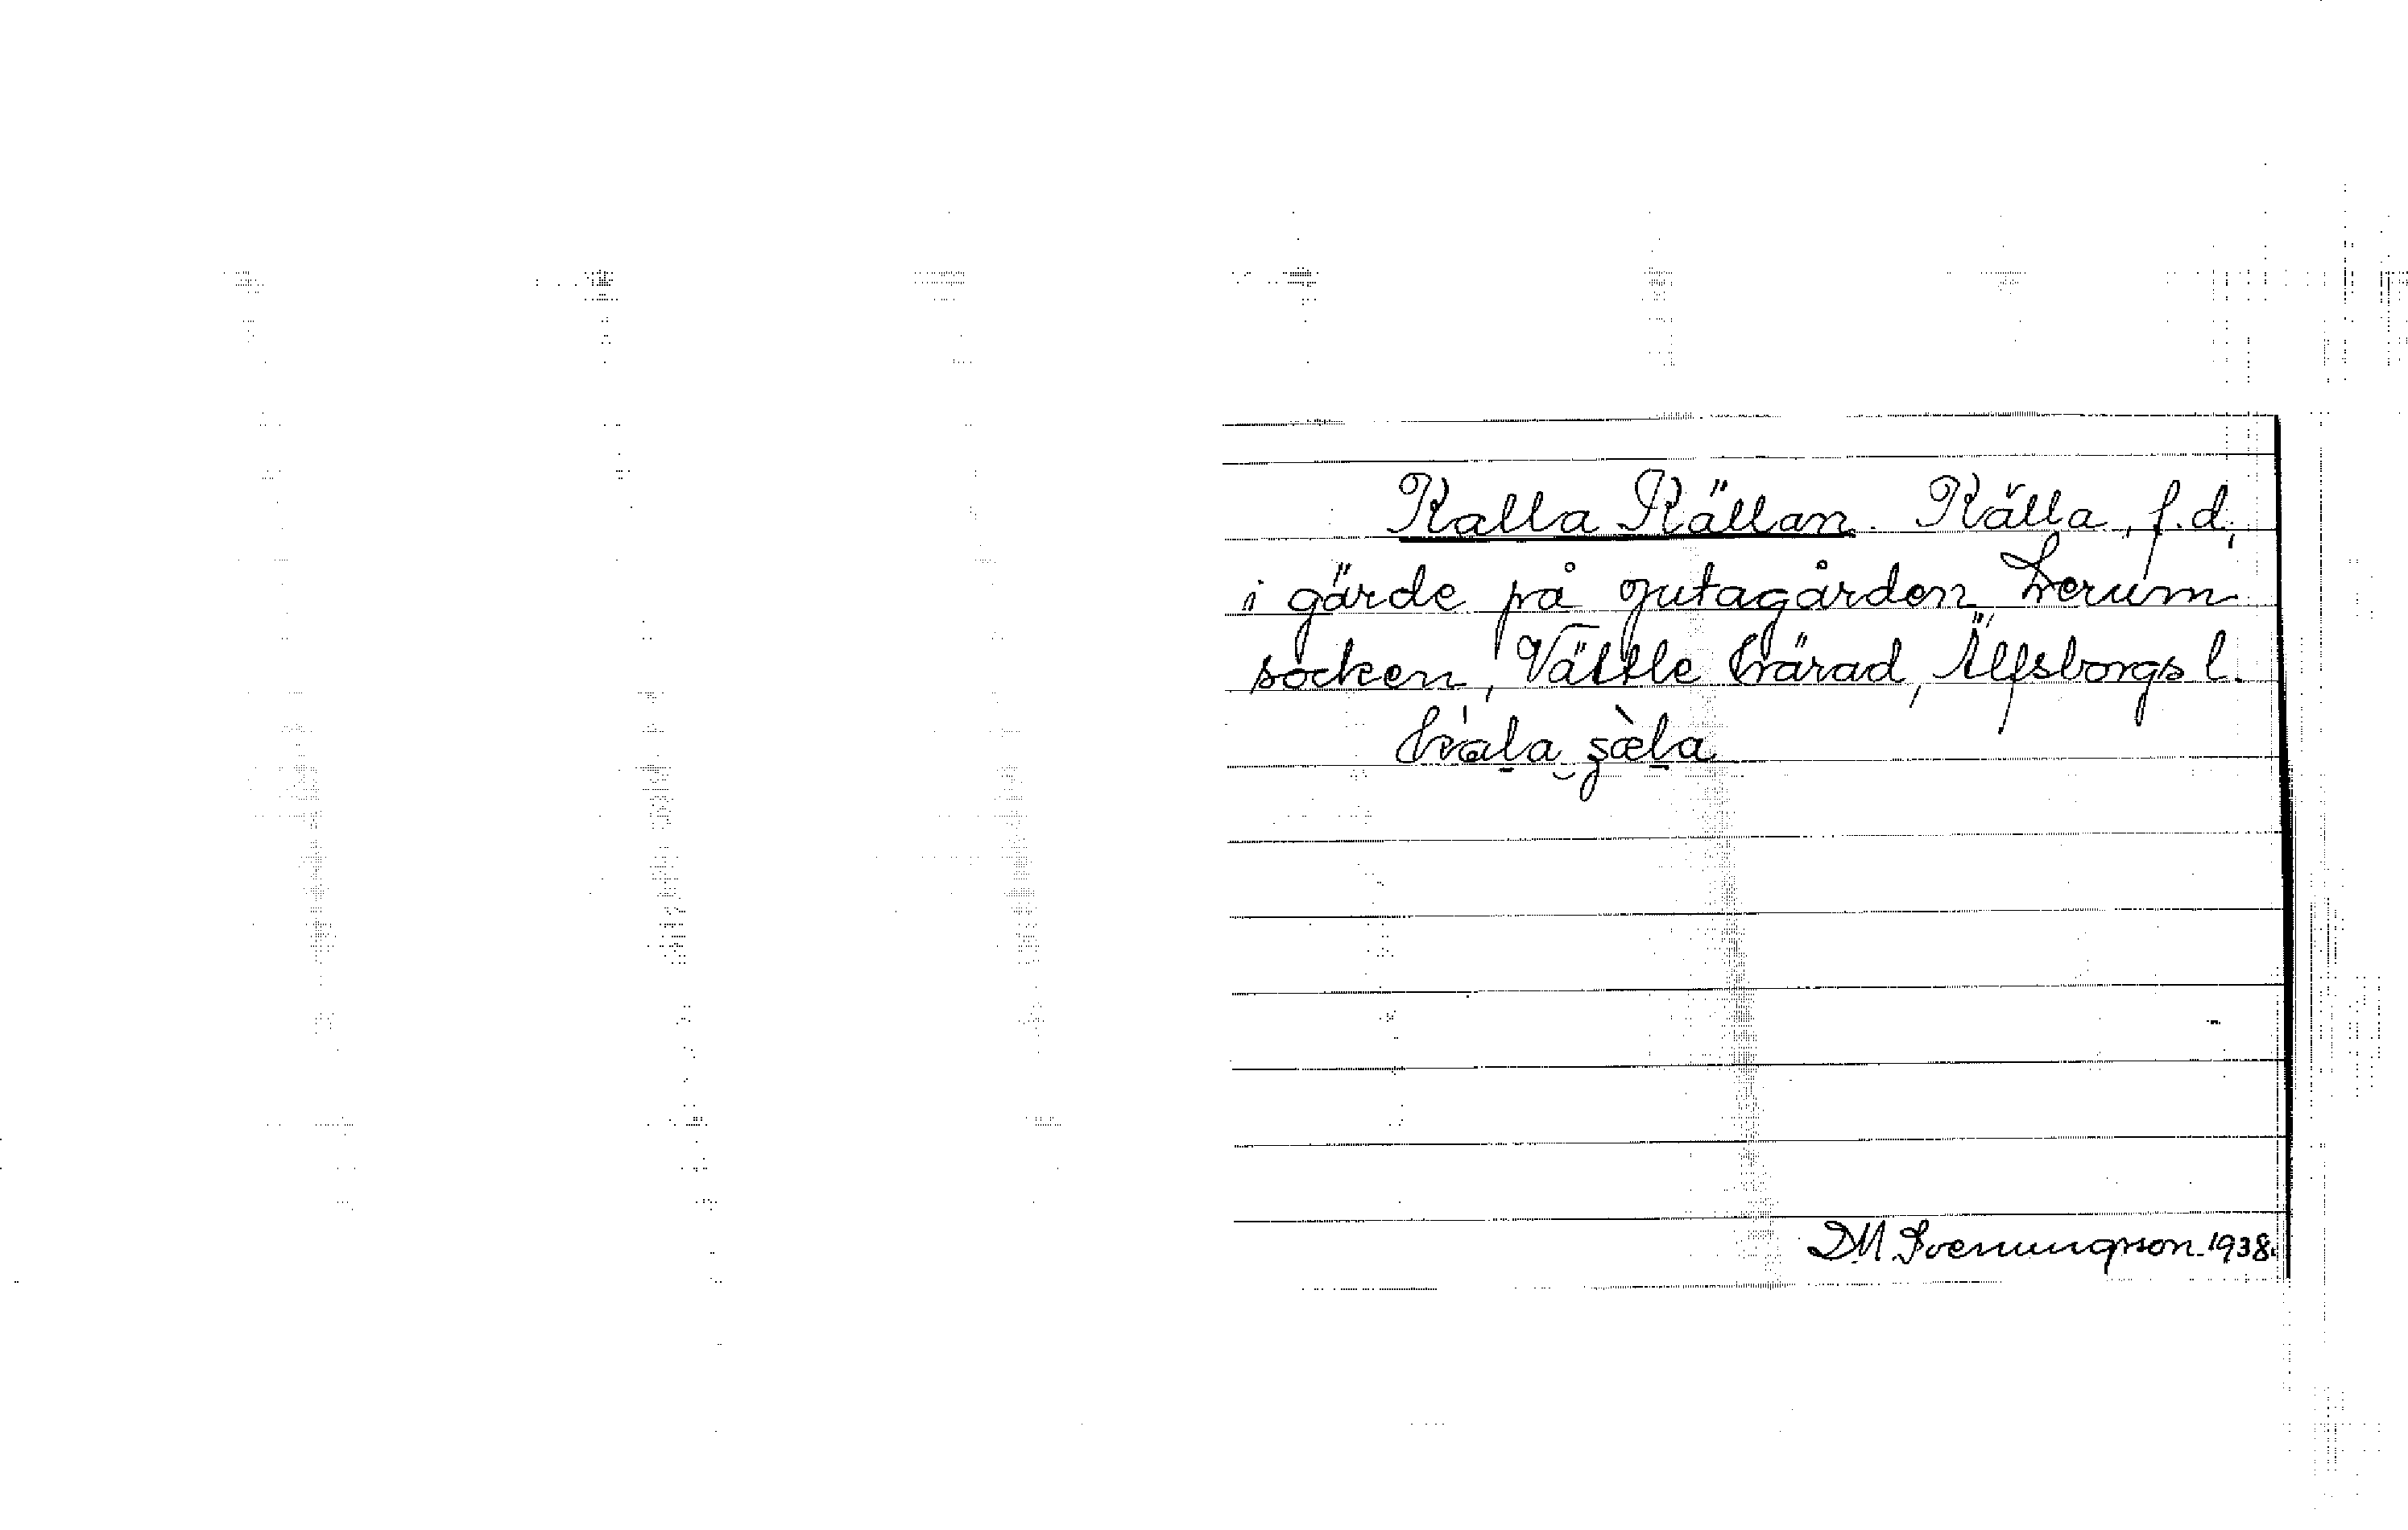 Kalla Källan. Källa, f.d.,
i gärde på Jutagården, Lerum
socken, Vättle härad, Älfsborgs l.
DM Svenungsson 1938.